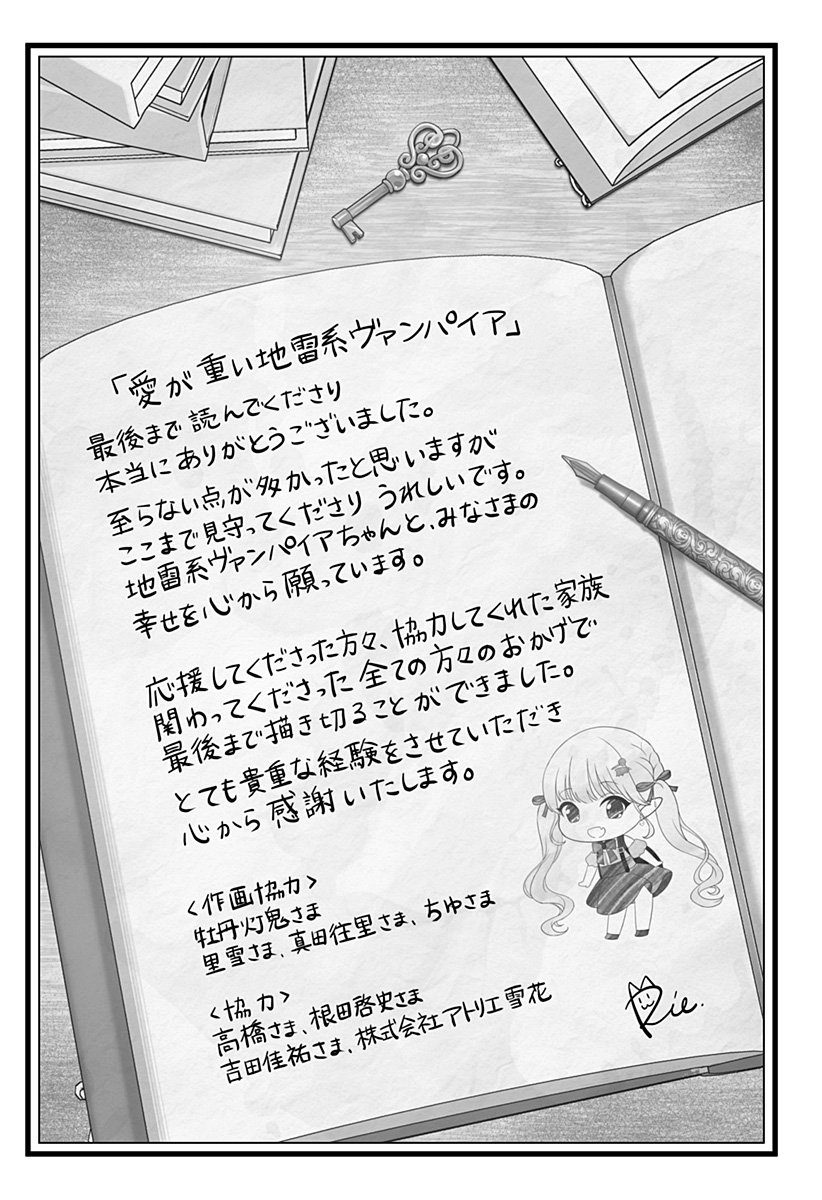 「愛が重い地雷系ヴァンパイア」
最後まで読んでくださり
本当にありがとうございました。
至らない点が多かったと思いますが
ここまで見守ってくださりうれしいです。
地雷系ヴァンパイアちゃんと、みなさまの
幸せを心から願っています。
応援してくださった方々、協力してくれた家族
関わってくださった全ての方々のおかげで
最後まで描き切ることができました。
とても貴重な経験をさせていただき
心から感謝いたします。
<作画協力>
牡丹灯鬼さま
里雪さま、真田往里さま、ちゆさま
<協力>
高橋さま、根田啓史さま
吉田佳祐さま、株式会社アトリエ雪花
Rie.